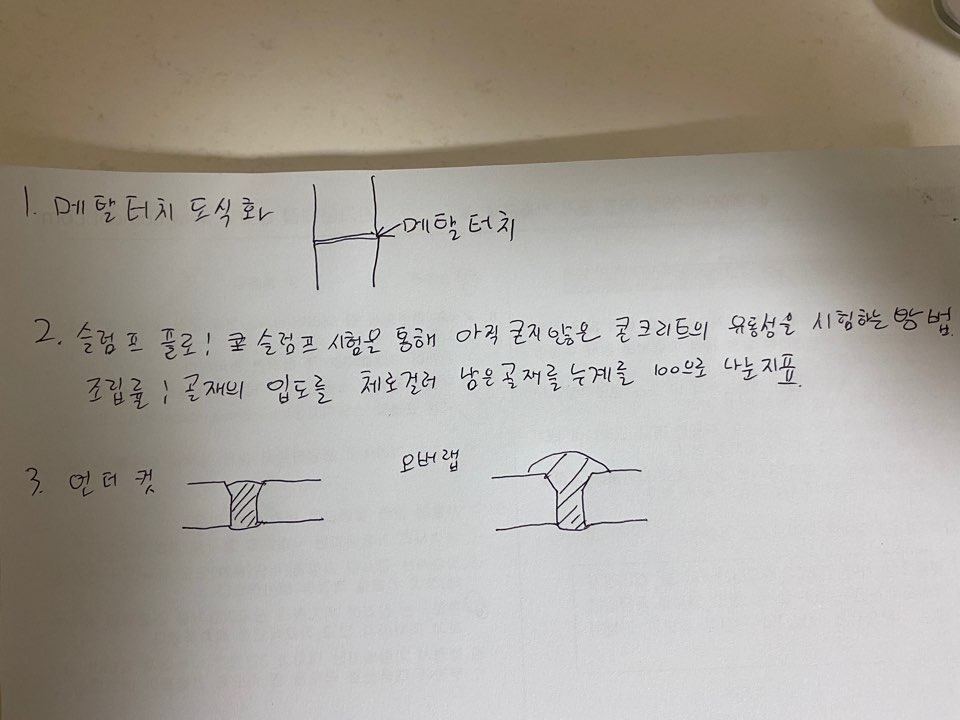 1. 메탈터치 도식화
메탈터치
2. 슬럼프 플로 ; 슬럼프 시험을 통해 아직 굳지않은 콘크리트의 유동성을 시험하는 방법.
조립률 ; 골재의 입도를 체로걸러 남은골재를 누계를 100으로 나눈지표.
3. 언더컷
오버랩